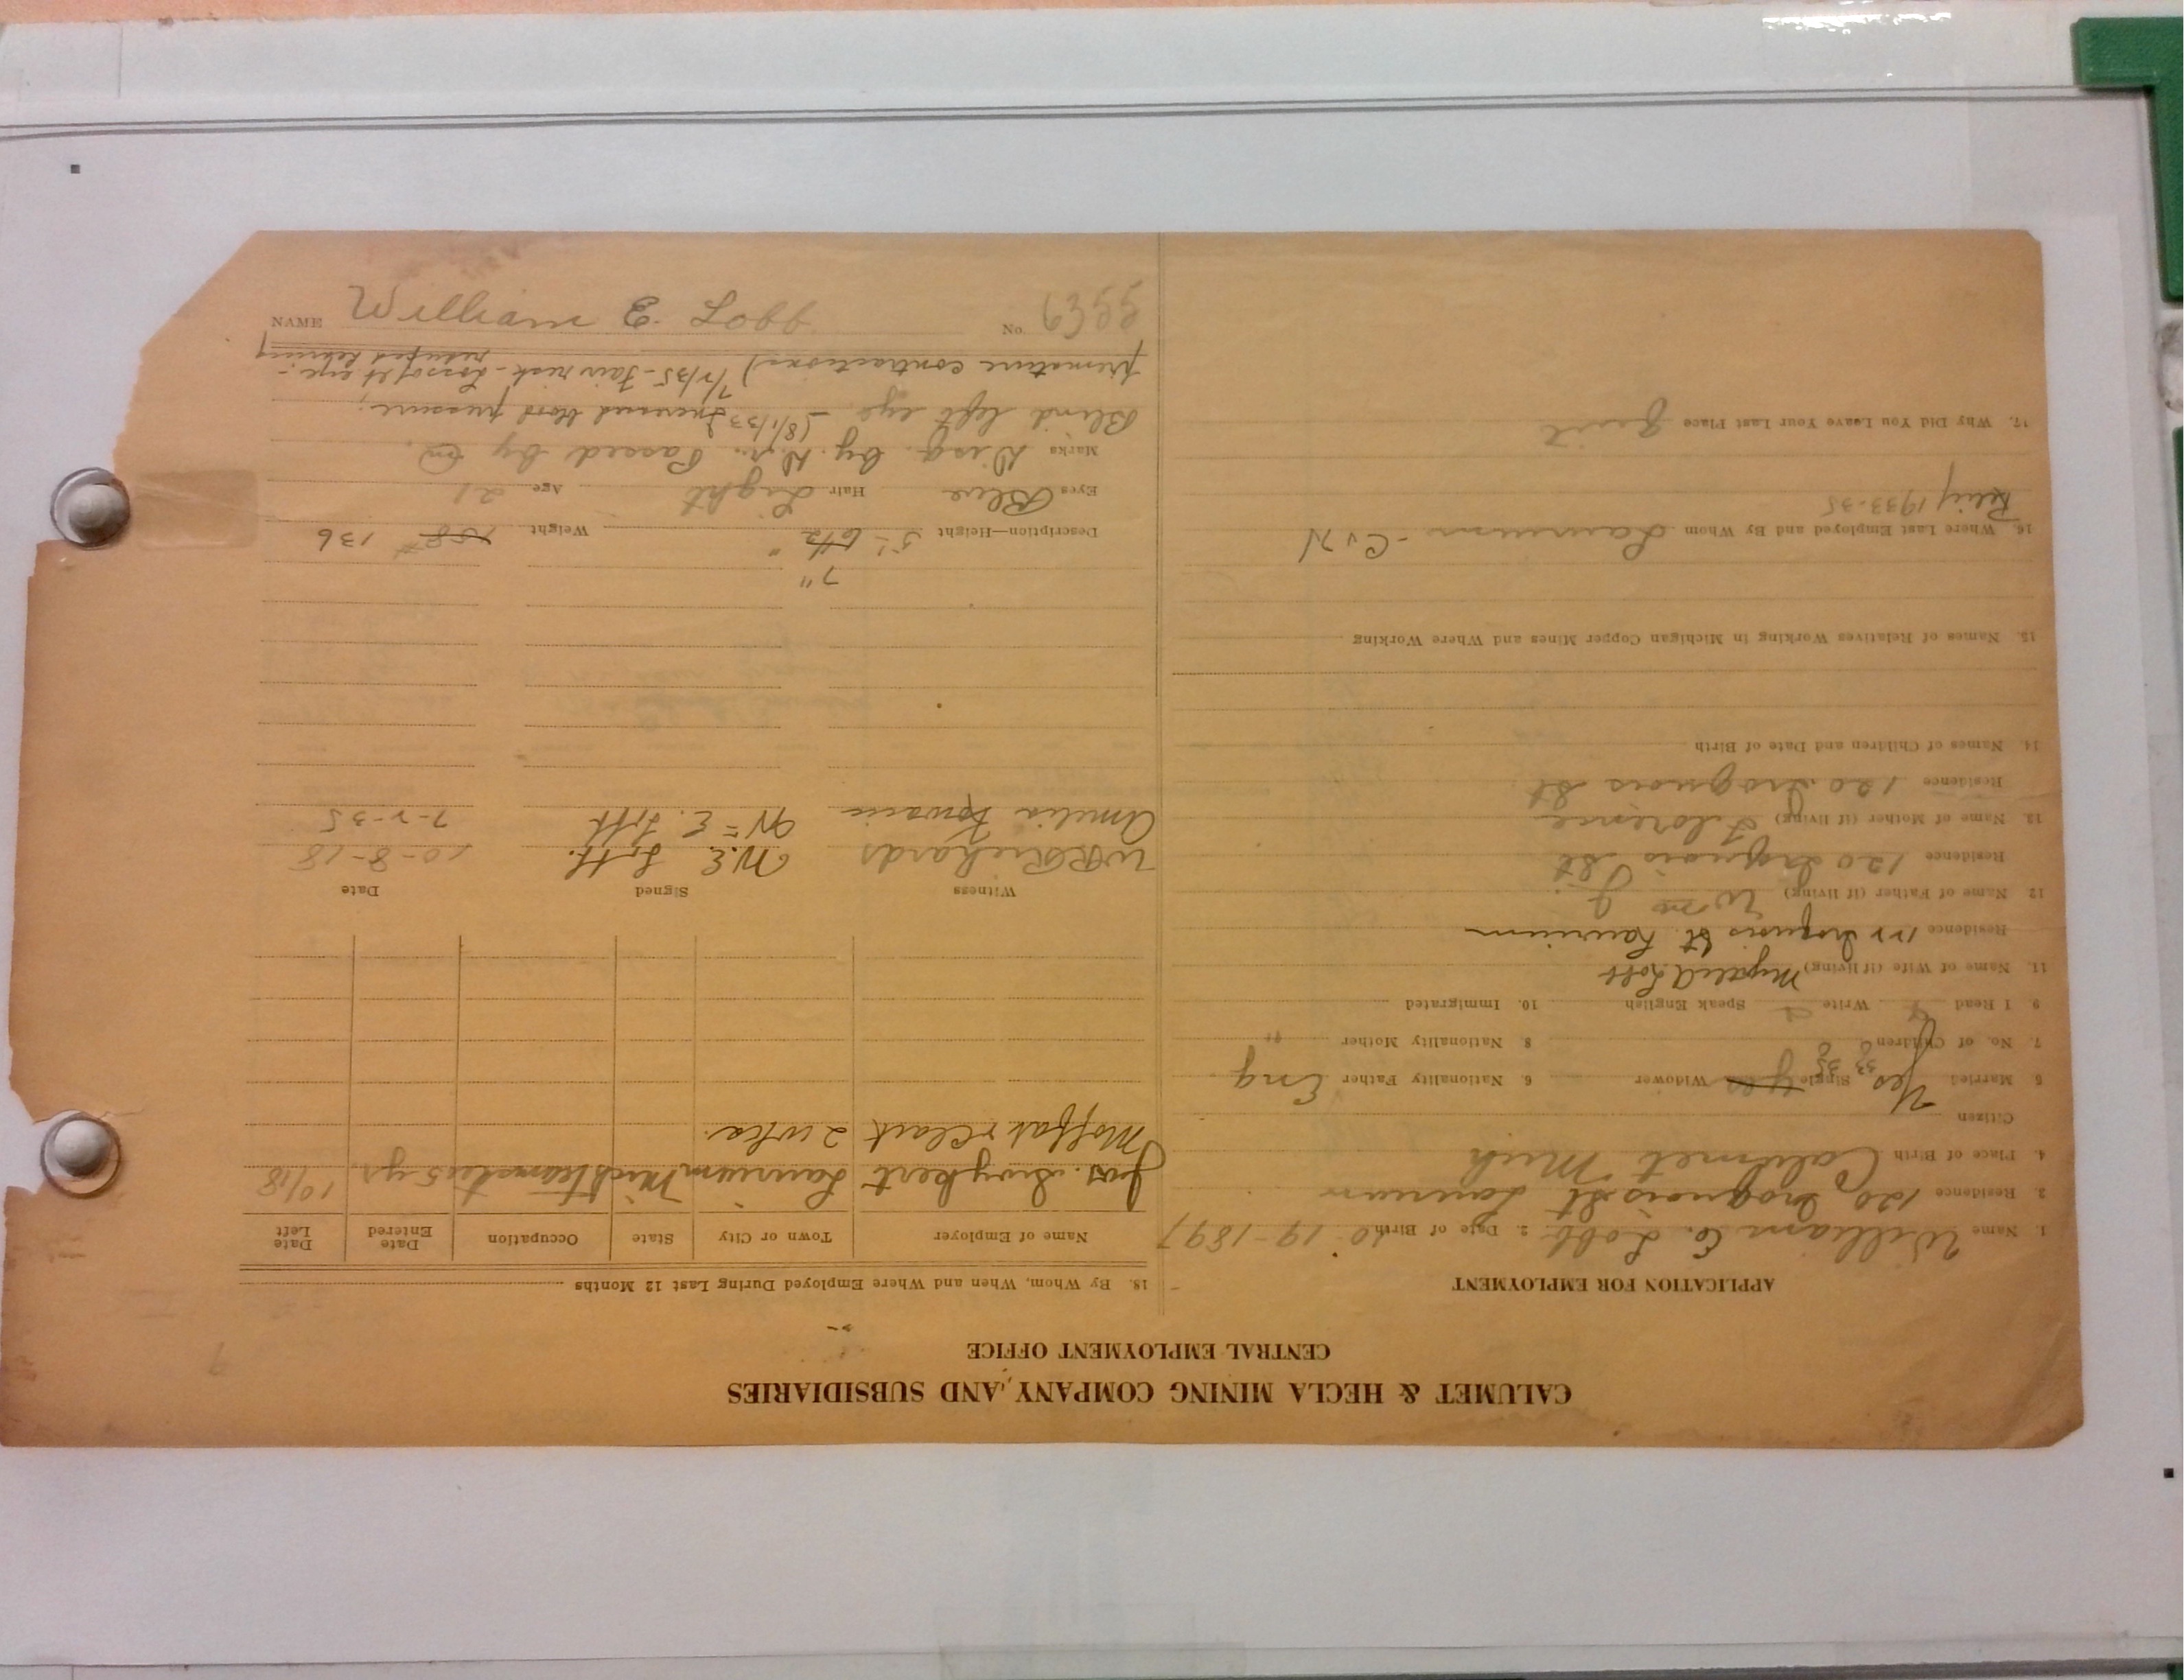 CALUMET & HECLA MINING COMPANY, AND SUBSIDIARIES
CENTRAL EMPLOYMENT OFFICE
APPLICATION FOR EMPLOYMENT
1. Name William E. Lobb 2. Date of Birth 10-19-1897
3. Residence 120 Iroquois St Laurium
4. Place of Birth Calumet Mich
Citizen
5 Married Yes 33 35 Single Yes Widower 6. Nationality Father Eng
7. No. of Children 8. Nationality Mother "
9. I Read Write Speak English 10. Immigrated
11. Name of Wife (if living) Lobb
Residence Iroquois St. Laurium
12 Name of Father (if living) Wm J
Residence 120 Iroquois St
13. Name of Mother (if living) Florence
Residence 120 Iroquois St
14. Names of Children and Date of Birth
15. Names of Relatives Working in Michigan Copper Mines and Where Working
16. Where Last Employed and By Whom Laurium - C & H
Relief 1933-35
17. Why Did You Leave Your Last Place Quit
18. By Whom, When and Where Employed During Last 12 Months
Name of Employer Town or City State Occupation Date Entered Date Left
Jos. Laurium Mich teamster 5 yr 10/18
2 wks.
Witness Signed Date
W R Richards W. E. Lobb 10-8-18
Amelia W. E. Lobb 7-2-35
7"
Description—Height 5'- 6½" Weight 158# 136
Eyes Blue Hair Light Age 21
Marks Disq. by Dr. Passed by
Blind left eye - (8/1/33 Increased blood pressure,
premature contractions) 7/2/35-Fair risk-Loss of lt eye.-
NAME William E. Lobb No. 6355